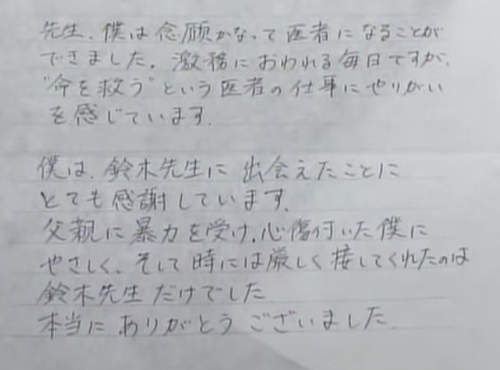 先生、僕は念願かなって医者になることが
できました。激務におわれる毎日ですが、
"命を救う"という医者の仕事にやりがい
を感じています。
僕は、鈴木先生に出会えたことに
とても感謝しています。
父親に暴力を受け、心傷付いた僕に
やさしく、そして時には厳しく接してくれたのは
鈴木先生だけでした
本当にありがとうございました